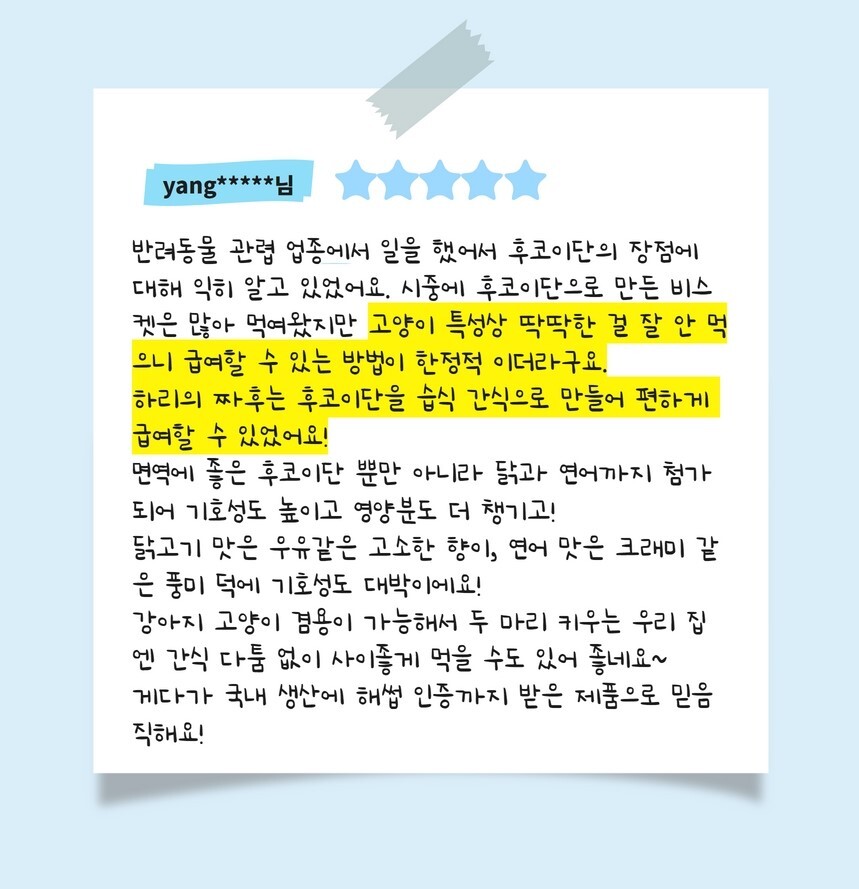 yang*****님
반려동물 관렵 업종에서 일을 했어서 후코이단의 장점에
대해 익히 알고 있었어요. 시중에 후코이단으로 만든 비스
켓은 많아 먹여왔지만 고양이 특성상 딱딱한 걸 잘 안 먹
으니 급여할 수 있는 방법이 한정적 이더라구요.
하리의 짜후는 후코이단을 습식 간식으로 만들어 편하게
급여할 수 있었어요!
면역에 좋은 후코이단 뿐만 아니라 닭과 연어까지 첨가
되어 기호성도 높이고 영양분도 더 챙기고!
닭고기 맛은 우유같은 고소한 향이, 연어 맛은 크래미 같
은 풍미 덕에 기호성도 대박이에요!
강아지 고양이 겸용이 가능해서 두 마리 키우는 우리 집
엔 간식 다툼 없이 사이좋게 먹을 수도 있어 좋네요~
게다가 국내 생산에 해썹 인증까지 받은 제품으로 믿음
직해요!